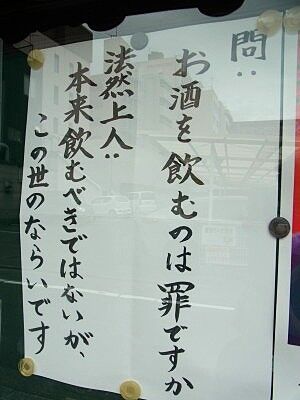 問：
お酒を飲むのは罪ですか
法然上人：
本来飲むべきではないが、
この世のならいです